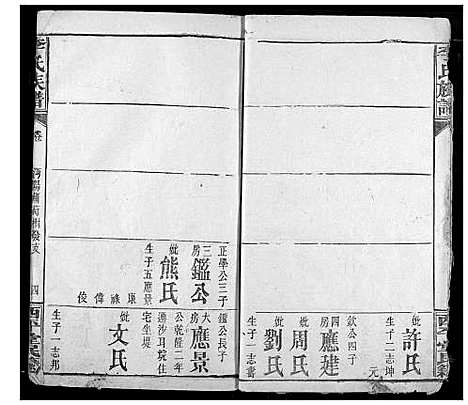 李氏族譜
妣許氏
生子二志坤
元
欽公四子
四房應建
妣周氏
妣劉氏
生子一志書
正學公三子
三房鑑公
妣熊氏
生子五應景
康
祿
偉
俊
鑑公長子
大房應景
公乾隆二年
遷沙耳垸住
宅坐堤
妣文氏
生子一志邦
李氏族譜
卷
四
西平堂